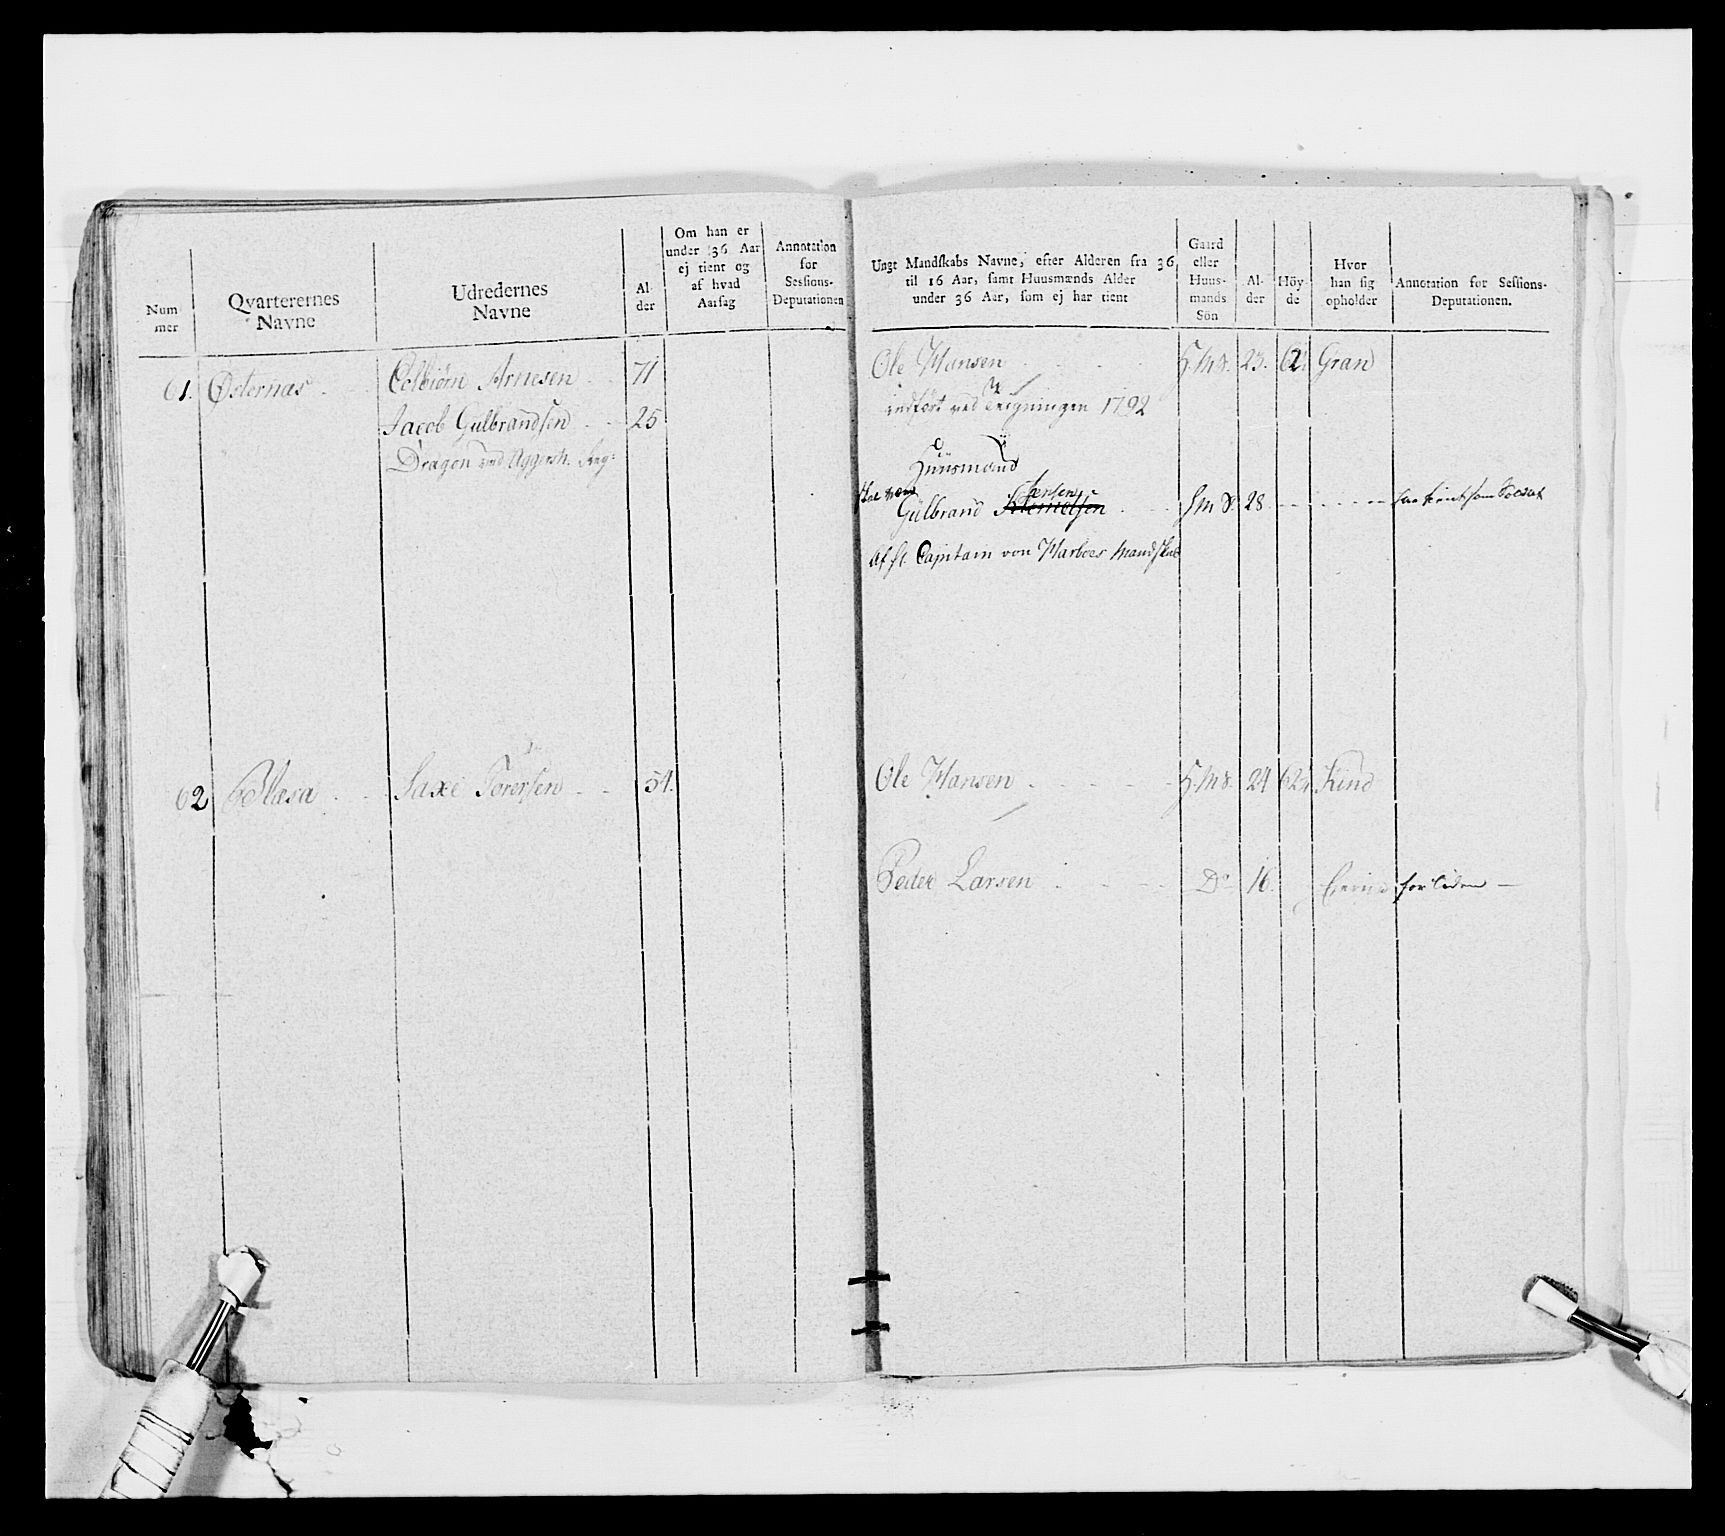 Num
mer
Qvarterernes
Navne
Udredernes
Navne
Al
der
Om han er
under 36 Aar
ej tient og
af hvad
Aarsag
Annotation
for
Sessions-
Deputationen
61. Østernas
Arnesen 71
Jacob Gulbrandsen 25
Dragon ved Aggersh. Reg:
62 Blæsa Saxe Torersen 54.
Ungt Mandskabs Navne, efter Alderen fra 36
til 16 Aar, samt Huusmænds Alder
under 36 Aar, som ej har tient
Gaard
eller
Huus-
mands
Sön
Al-
der
Höy-
de
Hvor
han sig
opholder
Annotation for Sessions-
Deputationen.
Ole Hansen H.M.S. 23. 62 Gran
indført ved 1792
Huusmænd
skal være Jensen
Gulbrand H M S. 28 har tient som Soldat
Af H. Capitain von Harboes Mandskab
Ole Hansen H.M.S. 24 62 Kind
Peder Larsen Do 16 for liden